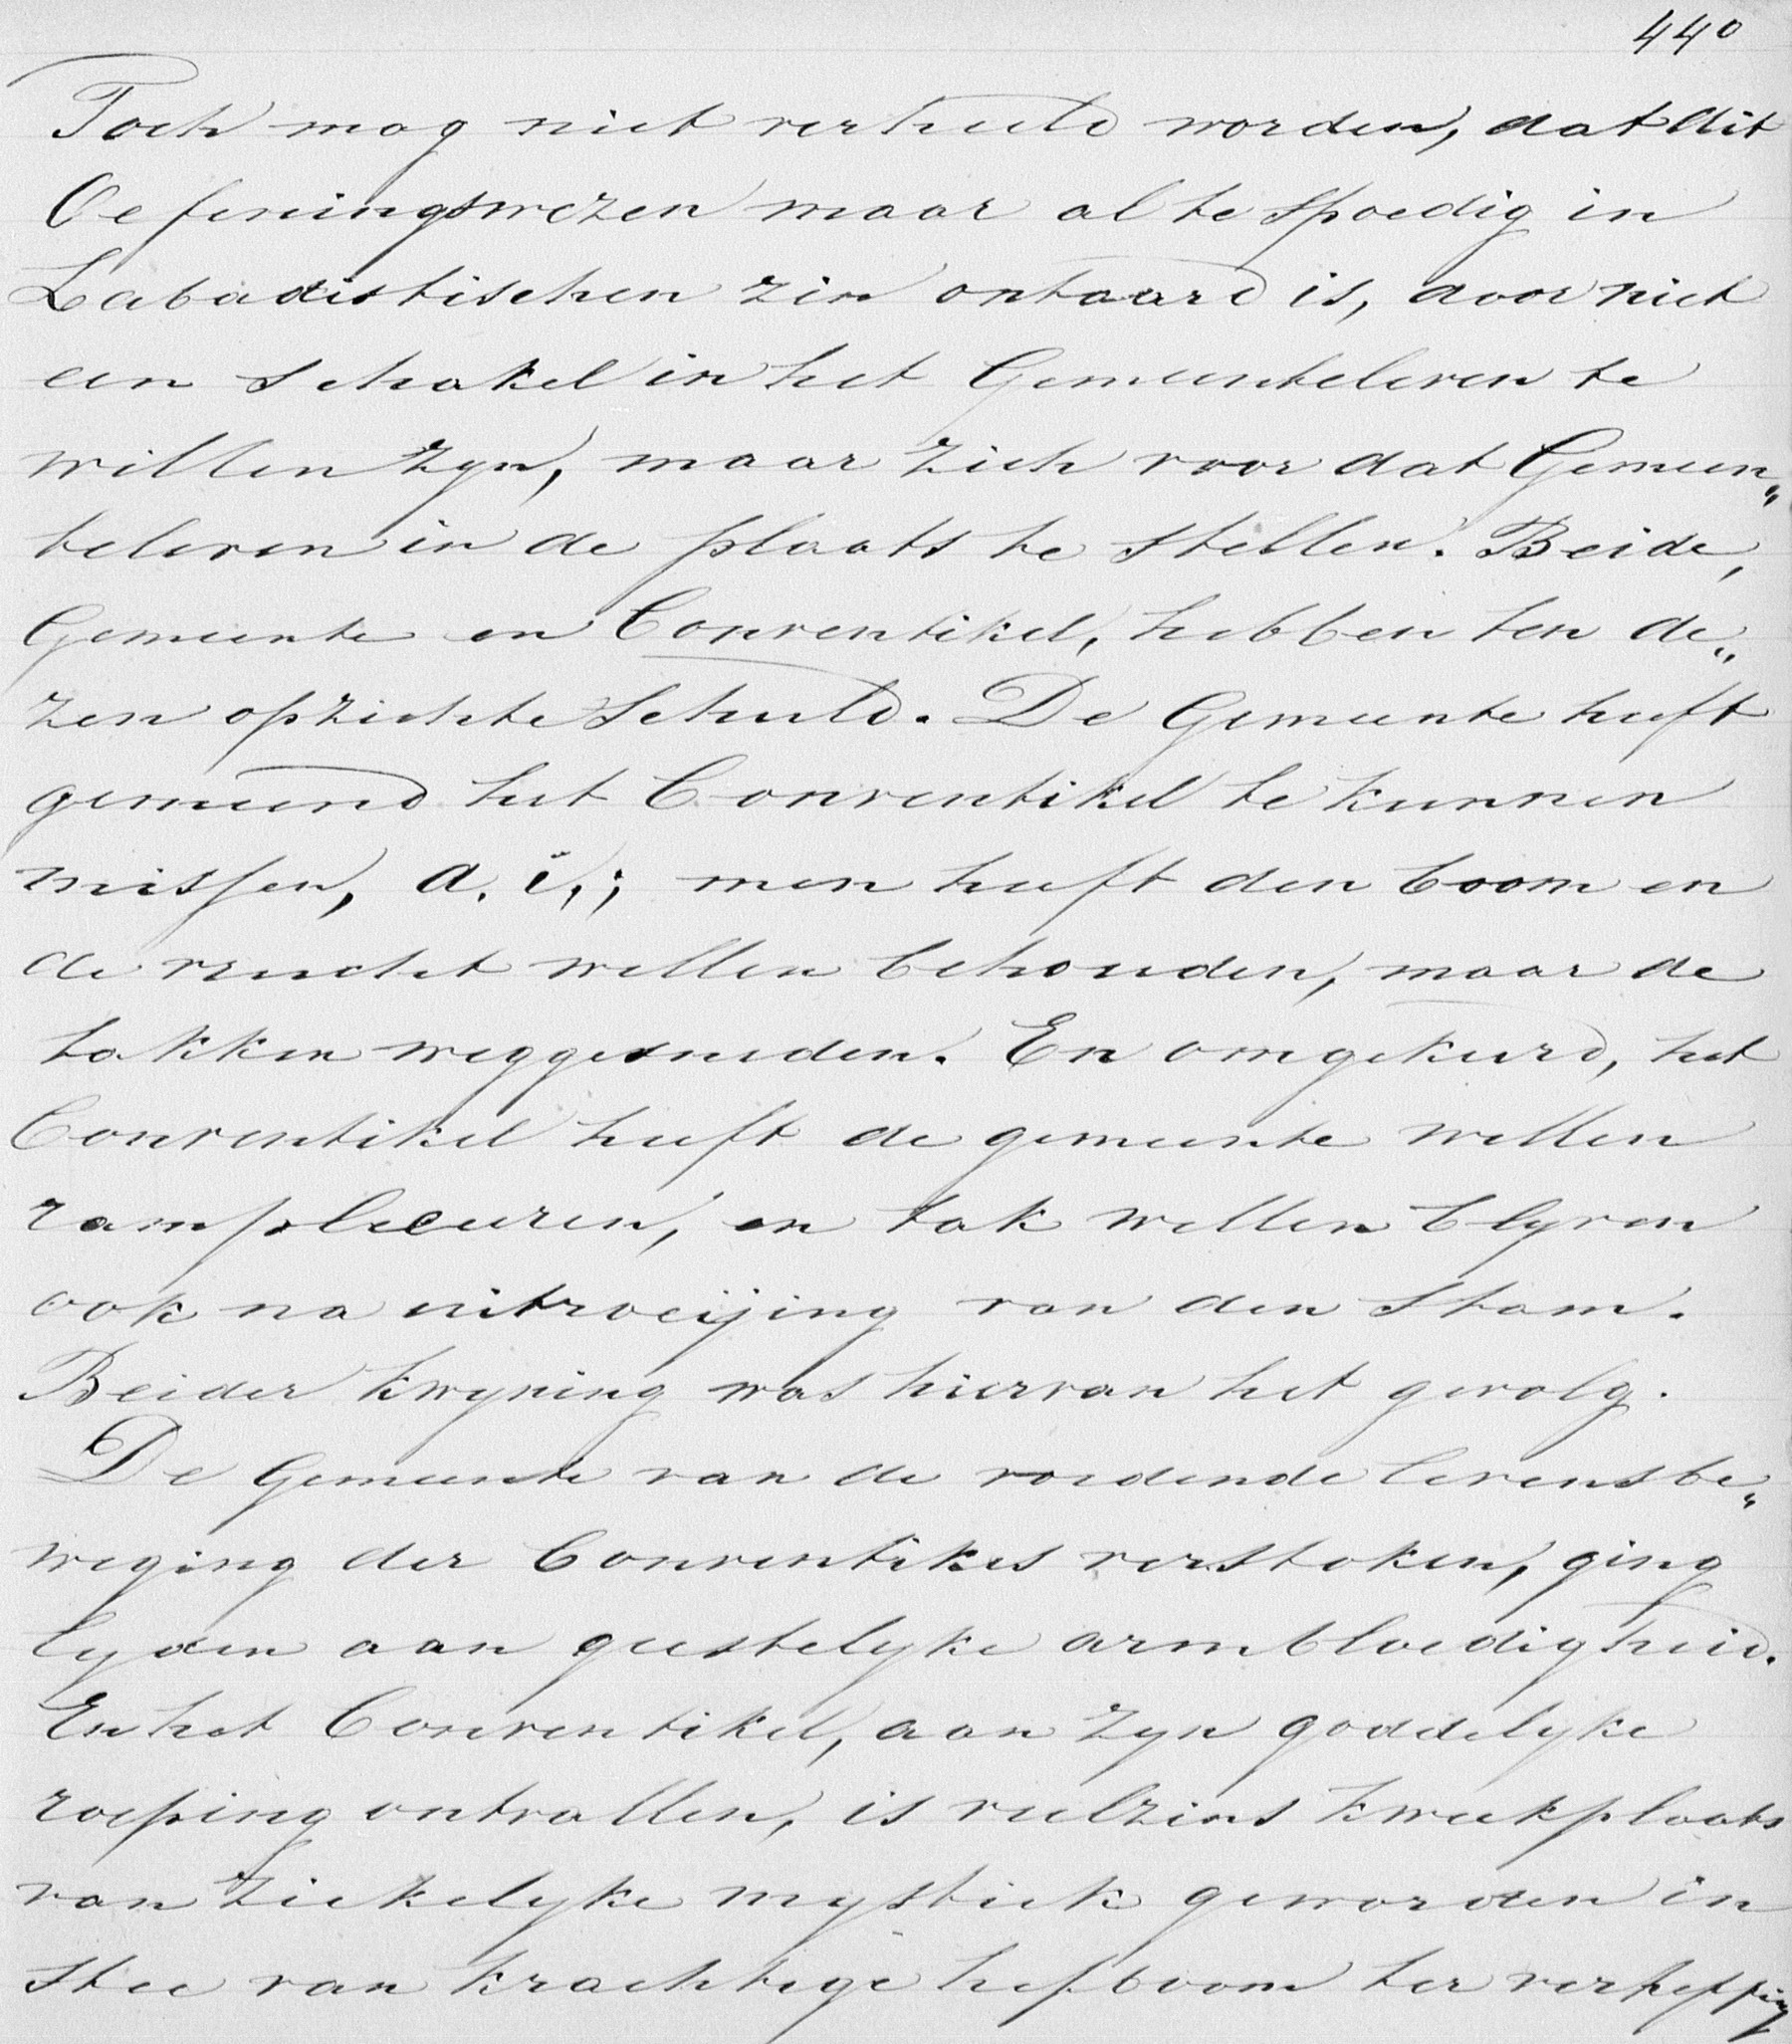 440
Toch mag niet verheeld worden, dat dit
Oefeningswezen maar al te spoedig in
Labadistischen zin ontaard is, door niet
een schakel in het Gemeenteleven te
willen zyn, maar zich voor dat Gemeen„
televen in de plaats te stellen. Beide,
Gemeente en Conventikel, hebben ten de„
zen opzichte schuld. De Gemeente heeft
gemeend het Conventikel te kunnen
missen, d. i.; men heeft den boom en
de vrucht willen behouden, maar de
takken weggesneden. En omgekeerd, het
Conventikel heeft de gemeente willen
rampleceeren, en tak willen blyven
ook na uitroeijing van den stam.
Beider kwyning was hiervan het gevolg.
De Gemeente van de voedende levensbe„
weging der Conventikes verstoken, ging
lyden aan geestelyke armbloedigheid.
En het Conventikel, aan zyn goddelyke
roeping ontvallen, is veelzins kweekplaats
van ziekelyke mystiek geworden in
stee van krachtige hefboom ter verheffing